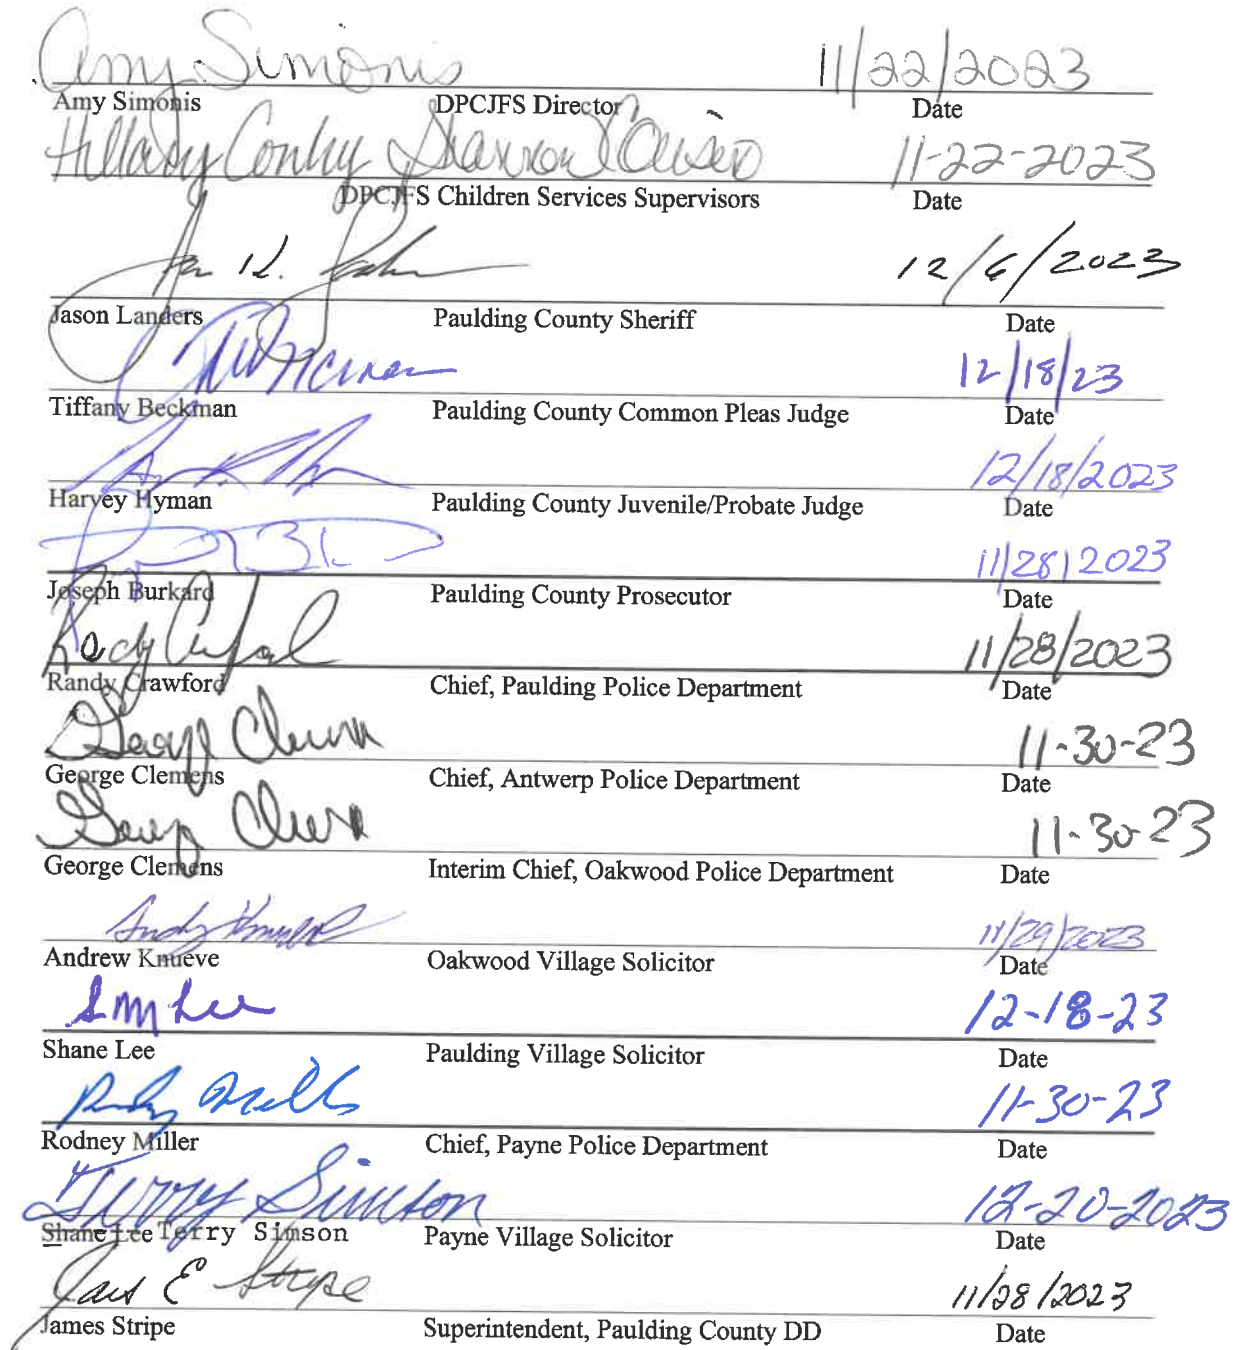 Amy Simonis 11/22/2023
Amy Simonis DPCJFS Director Date
Hillary Conley Shannon 11-22-2023
DPCJFS Children Services Supervisors Date
12/6/2023
Jason Landers Paulding County Sheriff Date
12/18/23
Tiffany Beckman Paulding County Common Pleas Judge Date
12/18/2023
Harvey Hyman Paulding County Juvenile/Probate Judge Date
11/28/2023
Joseph Burkard Paulding County Prosecutor Date
11/28/2023
Randy Crawford Chief, Paulding Police Department Date
George 11-30-23
George Clemens Chief, Antwerp Police Department Date
George 11-30-23
George Clemens Interim Chief, Oakwood Police Department Date
Andy 11/29/2023
Andrew Knueve Oakwood Village Solicitor Date
Lee 12-18-23
Shane Lee Paulding Village Solicitor Date
11-30-23
Rodney Miller Chief, Payne Police Department Date
Terry Simson 12-20-2023
Shane Lee Terry Simson Payne Village Solicitor Date
E Stripe 11/28/2023
James Stripe Superintendent, Paulding County DD Date